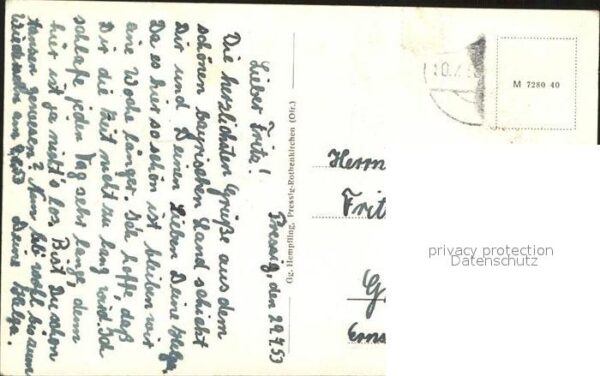 Pressig, den 29.4.53
Lieber Fritz!
Die herzlichsten Grüße aus dem
schönen bayrischen Land schickt
Dir und Deinen Lieben Deine Helga.
Da es hier so schön ist bleiben wir
eine Woche länger. Ich hoffe, daß
Dir die Zeit nicht zu lang wird. Ich
schlafe jeden Tag sehr lange, denn
hier ist ja nicht's los. Bist Du schon
tanzen gewesen? Nun leb wohl bis zum
Wiedersehn am 9.5.53 Deine Helga.
Gg. Hempfling, Pressig-Rothenkirchen (Ofr.)
M 7280 40
Herrn
Fritz
privacy protection
Datenschutz